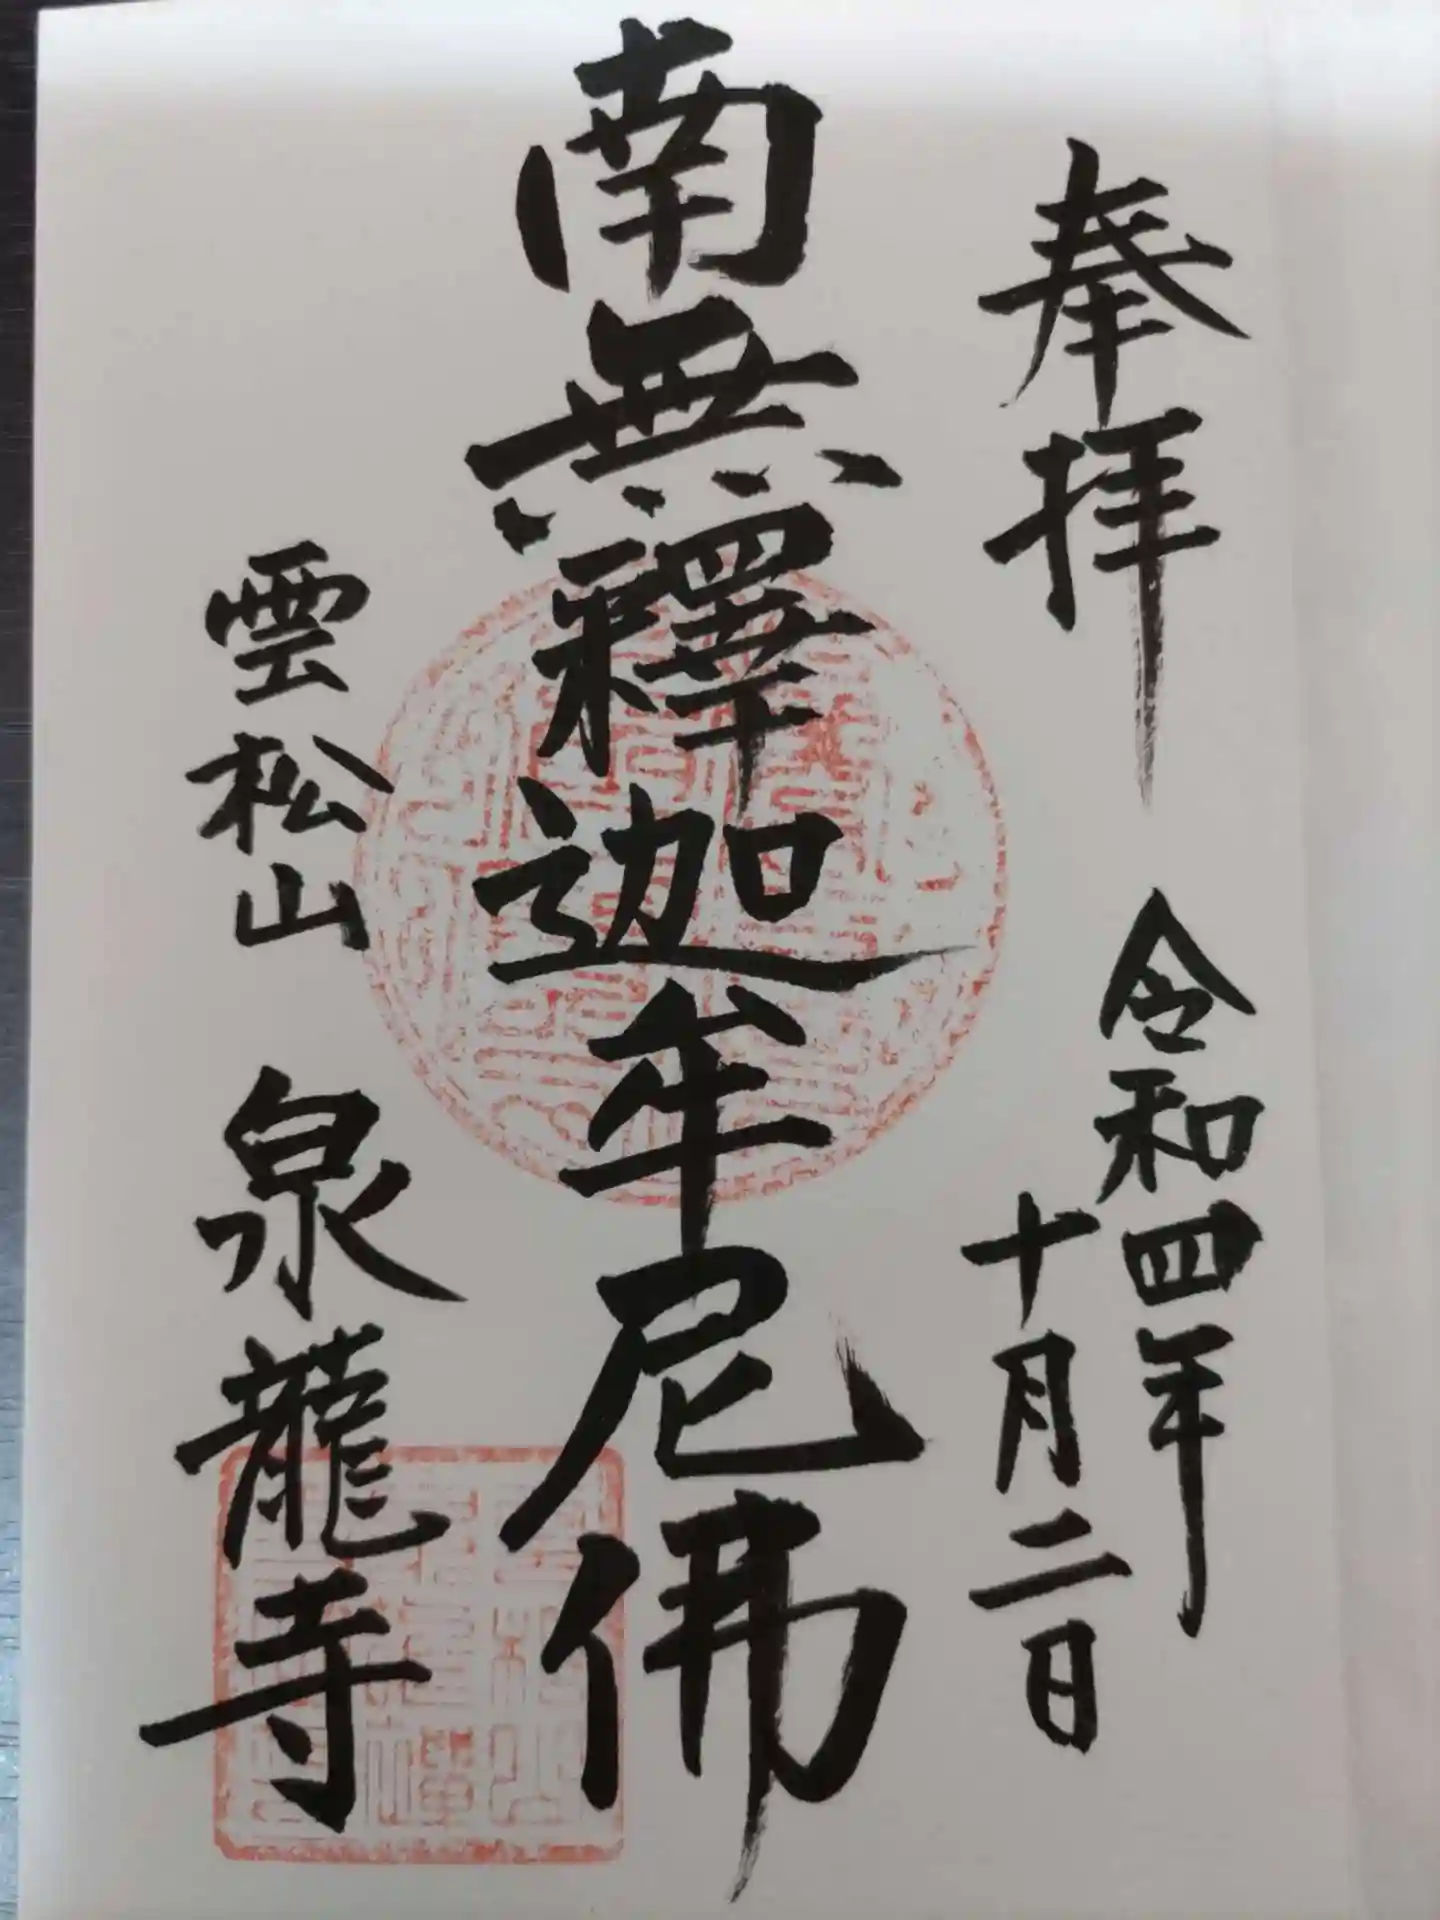 奉拝
令和四年
十月二日
南無釋迦牟尼佛
雲松山 泉龍寺